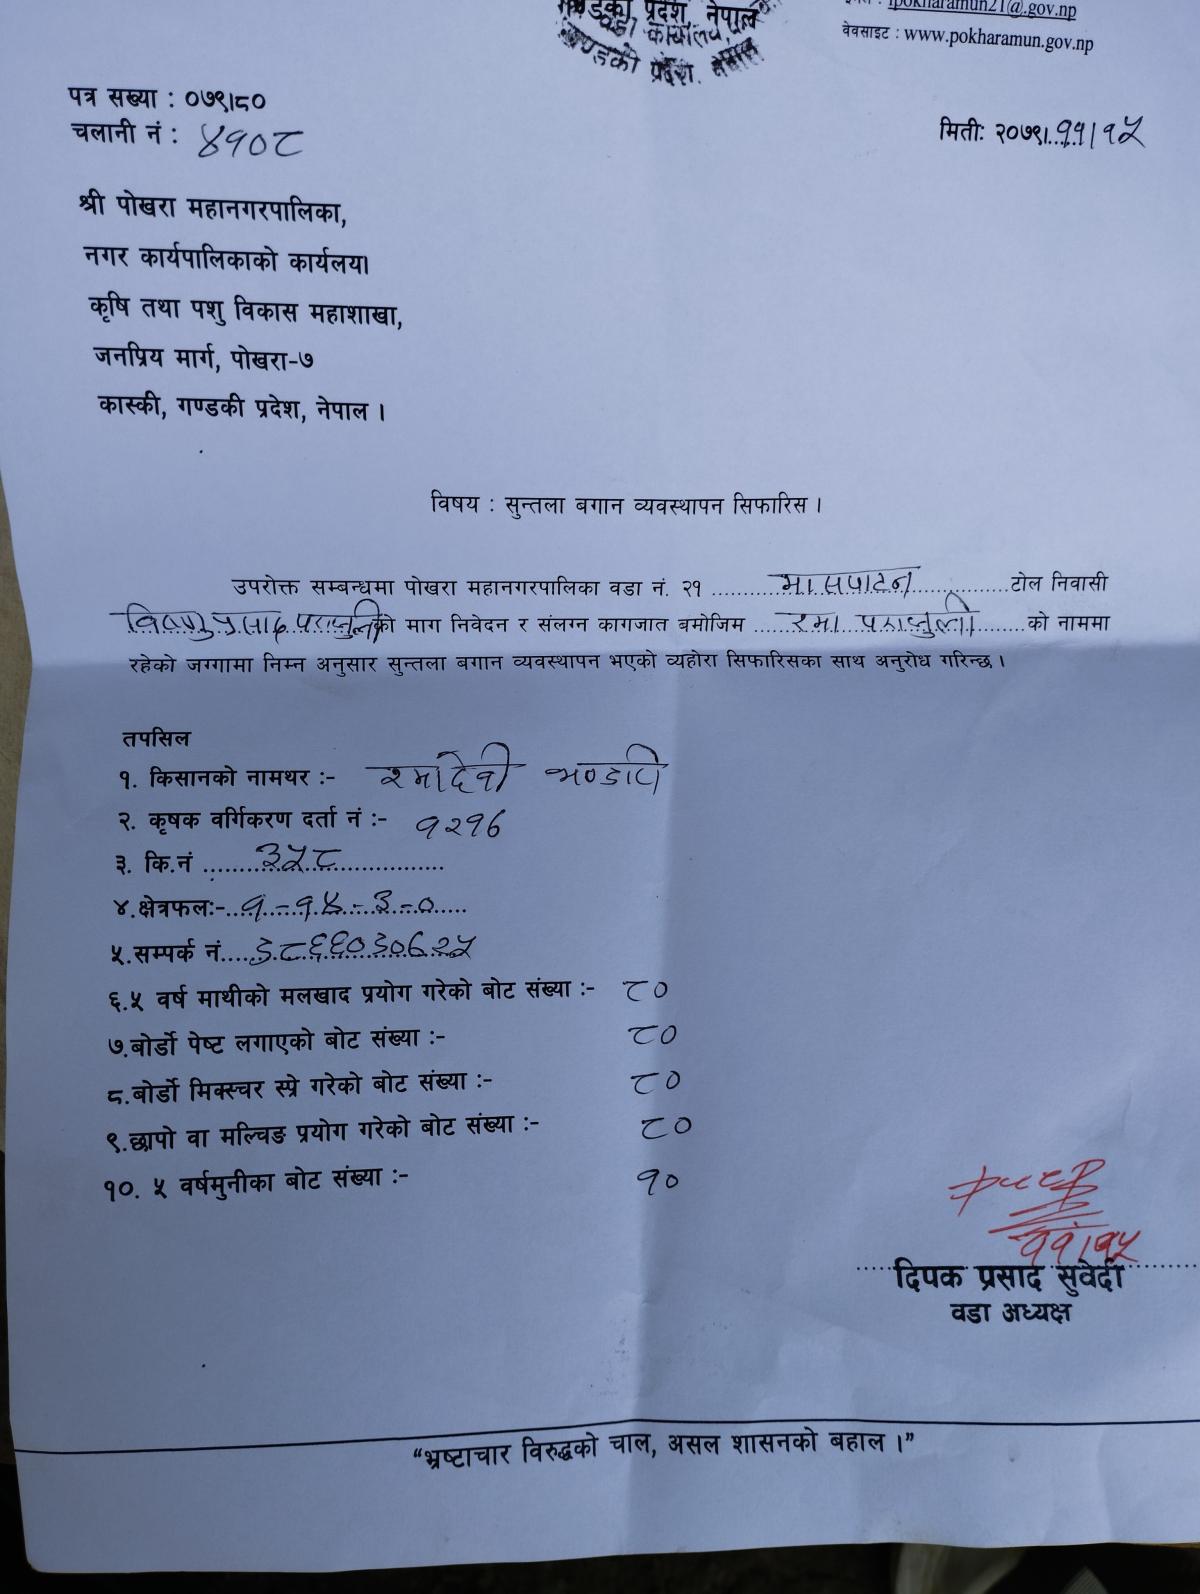 गण्डकी प्रदेश, नेपाल
वडा कार्यालय
गण्डकी प्रदेश, नेपाल
: ipokharamun21@.gov.np
वेवसाइट : www.pokharamun.gov.np
पत्र सख्या : ०७९।८०
चलानी नं : ४१०८
मितीः २०७९।११।१५
श्री पोखरा महानगरपालिका,
नगर कार्यपालिकाको कार्यलय।
कृषि तथा पशु विकास महाशाखा,
जनप्रिय मार्ग, पोखरा-७
कास्की, गण्डकी प्रदेश, नेपाल ।
विषय : सुन्तला बगान व्यवस्थापन सिफारिस ।
उपरोक्त सम्बन्धमा पोखरा महानगरपालिका वडा नं. २१ .......... टोल निवासी
विष्णु प्रसाद पराजुली को माग निवेदन र संलग्न कागजात बमोजिम रमा पराजुली को नाममा
रहेको जग्गामा निम्न अनुसार सुन्तला बगान व्यवस्थापन भएको व्यहोरा सिफारिसका साथ अनुरोध गरिन्छ ।
तपसिल
१. किसानको नामथर :- रमादेवी भण्डारी
२. कृषक वर्गिकरण दर्ता नं :- १२१६
३. कि.नं ३५८
४.क्षेत्रफलः- १-१४-३-०
५.सम्पर्क नं.
६.५ वर्ष माथीको मलखाद प्रयोग गरेको बोट संख्या :- ८०
७.बोर्डो पेष्ट लगाएको बोट संख्या :- ८०
८.बोर्डो मिक्स्चर स्प्रे गरेको बोट संख्या :- ८०
९.छापो वा मल्चिङ प्रयोग गरेको बोट संख्या :- ८०
१०. ५ वर्षमुनीका बोट संख्या :- १०
११।१५
दिपक प्रसाद सुवेदी
वडा अध्यक्ष
“भ्रष्टाचार विरुद्धको चाल, असल शासनको बहाल ।”